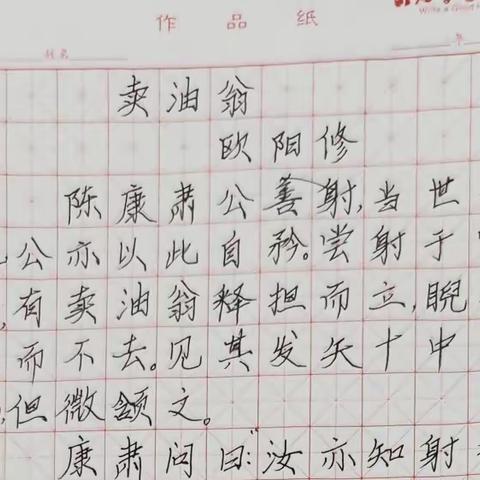 作品纸
卖油翁
欧阳修
陈康肃公善射,当世
公亦以此自矜。尝射于
,有卖油翁释担而立,睨
而不去。见其发矢十中
,但微颔文。
康肃问曰:“汝亦知射